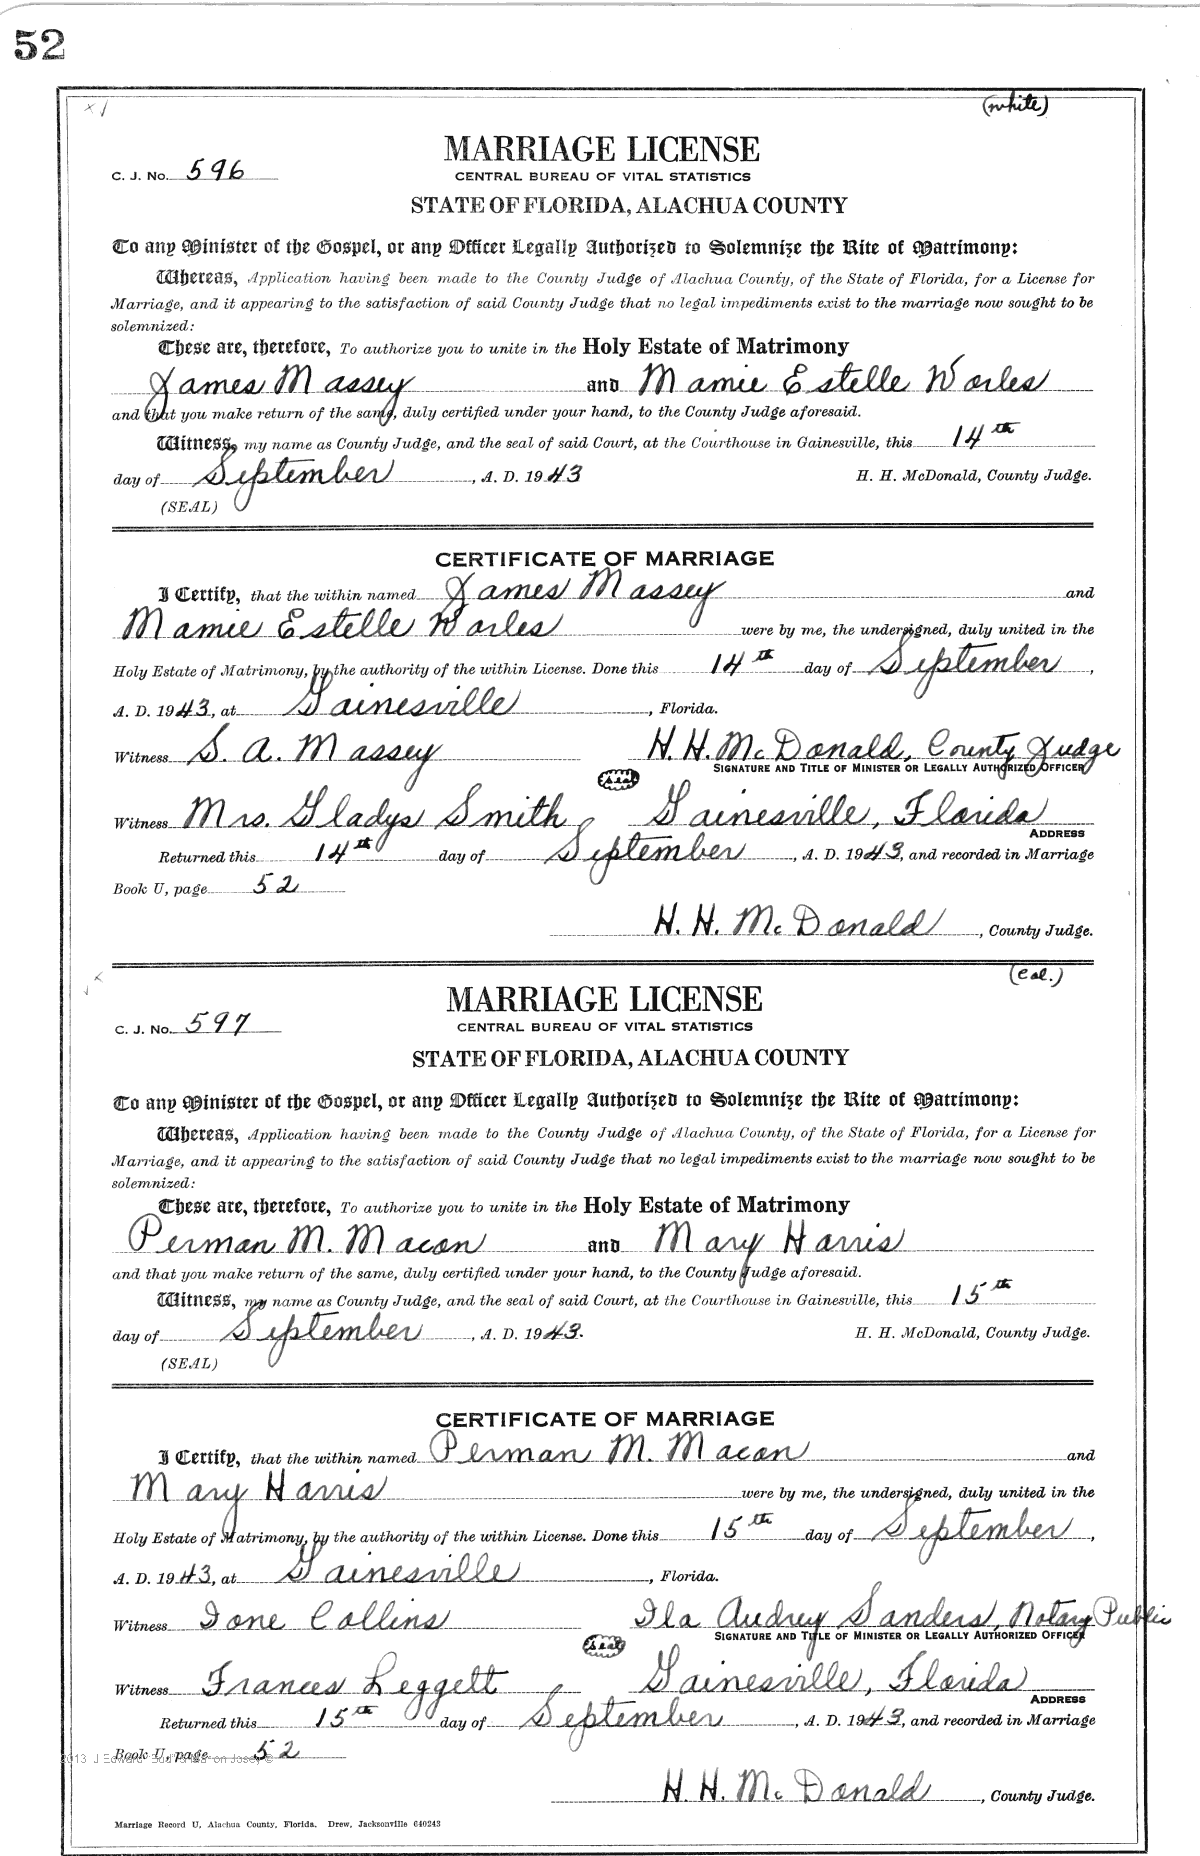 52
(white)
MARRIAGE LICENSE
C. J. No. 596
CENTRAL BUREAU OF VITAL STATISTICS
STATE OF FLORIDA, ALACHUA COUNTY
To any Minister of the Gospel, or any Officer Legally Authorized to Solemnize the Rite of Matrimony:
Whereas, Application having been made to the County Judge of Alachua County, of the State of Florida, for a License for
Marriage, and it appearing to the satisfaction of said County Judge that no legal impediments exist to the marriage now sought to be
solemnized:
These are, therefore, To authorize you to unite in the Holy Estate of Matrimony
James Massey and Mamie Estelle Worles
and that you make return of the same, duly certified under your hand, to the County Judge aforesaid.
Witness, my name as County Judge, and the seal of said Court, at the Courthouse in Gainesville, this 14th
day of September, A. D. 1943 H. H. McDonald, County Judge.
(SEAL)
CERTIFICATE OF MARRIAGE
I Certify, that the within named James Massey and
Mamie Estelle Worles were by me, the undersigned, duly united in the
Holy Estate of Matrimony, by the authority of the within License. Done this 14th day of September,
A. D. 1943, at Gainesville, Florida.
Witness S. A. Massey H. H. McDonald, County Judge
(Seal) SIGNATURE AND TITLE OF MINISTER OR LEGALLY AUTHORIZED OFFICER
Witness Mrs. Gladys Smith Gainesville, Florida
ADDRESS
Returned this 14th day of September, A. D. 1943, and recorded in Marriage
Book U, page 52
H. H. McDonald, County Judge.
(Col.)
MARRIAGE LICENSE
C. J. No. 597
CENTRAL BUREAU OF VITAL STATISTICS
STATE OF FLORIDA, ALACHUA COUNTY
To any Minister of the Gospel, or any Officer Legally Authorized to Solemnize the Rite of Matrimony:
Whereas, Application having been made to the County Judge of Alachua County, of the State of Florida, for a License for
Marriage, and it appearing to the satisfaction of said County Judge that no legal impediments exist to the marriage now sought to be
solemnized:
These are, therefore, To authorize you to unite in the Holy Estate of Matrimony
Perman M. Macon and Mary Harris
and that you make return of the same, duly certified under your hand, to the County Judge aforesaid.
Witness, my name as County Judge, and the seal of said Court, at the Courthouse in Gainesville, this 15th
day of September, A. D. 1943. H. H. McDonald, County Judge.
(SEAL)
CERTIFICATE OF MARRIAGE
I Certify, that the within named Perman M. Macon and
Mary Harris were by me, the undersigned, duly united in the
Holy Estate of Matrimony, by the authority of the within License. Done this 15th day of September,
A. D. 1943, at Gainesville, Florida.
Witness Ione Collins Ila Audrey Sanders, Notary Public
(Seal) SIGNATURE AND TITLE OF MINISTER OR LEGALLY AUTHORIZED OFFICER
Witness Frances Leggett Gainesville, Florida
ADDRESS
Returned this 15th day of September, A. D. 1943, and recorded in Marriage
Book U, page 52
H. H. McDonald, County Judge.
Marriage Record U, Alachua County, Florida. Drew, Jacksonville 640243